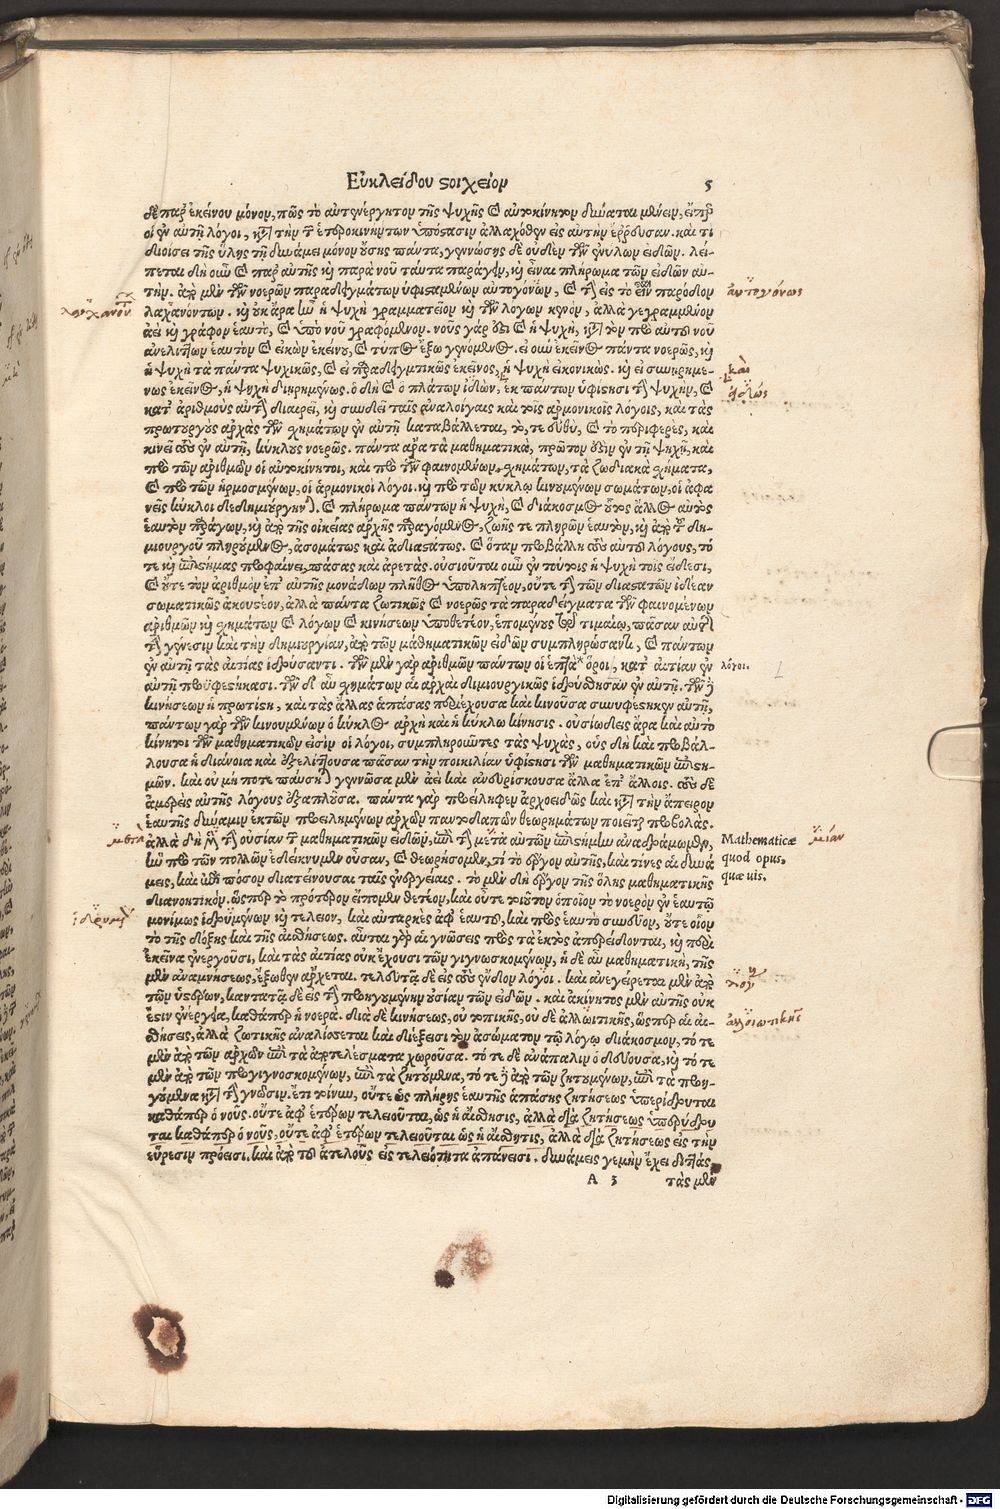 Εὐκλείδου ϛοιχεῖον 5
δὲ παρ' ἐκείνου μόνον, πῶς τὸ αὐτενέργητον τῆς ψυχῆς καὶ αὐτοκίνητον δύναται μένειν, εἴπερ
οἱ ἐν αὐτῇ λόγοι, κατὰ τὴν τῶν ἑτεροκινήτων ὑπόϛασιν ἀλλαχόθεν εἰς αὐτὴν ἐρρύησαν. καὶ τί
διοίσει τῆς ὕλης τῇ δυνάμει μόνον οὔσης πάντα, γεννώσης δὲ οὐδὲν τῶν ἐνύλων εἰδῶν. λεί-
πεται δὴ οὖν καὶ παρ' αὐτῆς καὶ παρὰ νοῦ ταῦτα παράγειν, καὶ εἶναι πλήρωμα τῶν εἰδῶν αὐ-
τὴν. ἀπὸ μὲν τῶν νοερῶν παραδειγμάτων ὑφιϛαμένων αὐτογόνων, καὶ τὴν εἰς τὸ εἶναι πάροδον
λαχανόντων. καὶ οὐκ ἄρα ἦν ἡ ψυχὴ γραμματεῖον καὶ τῶν λόγων κενὸν, ἀλλὰ γεγραμμένον
ἀεὶ καὶ γράφον ἑαυτὸ, καὶ ὑπὸ νοῦ γραφόμενον. νοῦς γάρ ἐϛι καὶ ἡ ψυχὴ, κατὰ τὸν πρὸ αὐτοῦ νοῦ
ἀνελίττων ἑαυτὸν καὶ εἰκὼν ἐκείνου, καὶ τύπος ἔξω γενόμενος. εἰ οὖν ἐκεῖνος πάντα νοερῶς, καὶ
ἡ ψυχὴ τὰ πάντα ψυχικῶς, καὶ εἰ παραδειγματικῶς ἐκεῖνος, ἡ ψυχὴ εἰκονικῶς. καὶ εἰ συνῃρημέ-
νως ἐκεῖνος, ἡ ψυχὴ διῃρημένως. ὃ δὴ καὶ ὁ πλάτων ἰδὼν, ἐκ πάντων ὑφίϛησι τὴν ψυχὴν, καὶ
κατ' ἀριθμοὺς αὐτὴν διαιρεῖ, καὶ συνδεῖ ταῖς ἀναλογίαις καὶ τοῖς ἁρμονικοῖς λόγοις, καὶ τὰς
πρωτουργοὺς ἀρχὰς τῶν σχημάτων ἐν αὐτῇ καταβάλλεται, τό, τε εὐθὺ, καὶ τὸ περιφερὲς, καὶ
κινεῖ τοὺς ἐν αὐτῇ, κύκλους νοερῶς. πάντα ἄρα τὰ μαθηματικὰ, πρῶτόν ἐϛιν ἐν τῇ ψυχῇ, καὶ
πρὸ τῶν ἀριθμῶν οἱ αὐτοκίνητοι, καὶ πρὸ τῶν φαινομένων σχημάτων, τὰ ζωδιακὰ σχήματα,
καὶ πρὸ τῶν ἡρμοσμένων, οἱ ἁρμονικοὶ λόγοι. καὶ πρὸ τῶν κύκλῳ κινουμένων σωμάτων, οἱ ἀφα
νεῖς κύκλοι δεδημιούργηνται. καὶ πλήρωμα πάντων ἡ ψυχὴ, καὶ διάκοσμος οὗτος ἄλλος αὐτὸς
ἑαυτὸν παράγων, καὶ ἀπὸ τῆς οἰκείας ἀρχῆς παραγόμενος, ζωῆς τε πληρῶν ἑαυτὸν, καὶ ἀπὸ τοῦ δη-
μιουργοῦ πληρούμενος, ἀσωμάτως καὶ ἀδιαϛάτως. καὶ ὅταν προβάλλῃ τοὺς αὑτοῦ λόγους, τό
τε καὶ ἐπιϛήμας προφαίνει, πάσας καὶ ἀρετὰς. οὐσιοῦται οὖν ἐν τούτοις ἡ ψυχὴ τοῖς εἴδεσι,
καὶ οὔτε τὸν ἀριθμὸν ἐπ' αὐτῆς μονάδων πλῆθος ὑποληπτέον, οὔτε τὴν τῶν διαϛατῶν ἰδέαν
σωματικῶς ἀκουϛέον, ἀλλὰ πάντα ζωτικῶς καὶ νοερῶς τὰ παραδείγματα τῶν φαινομένων
ἀριθμῶν καὶ σχημάτων καὶ λόγων καὶ κινήσεων ὑποθετέον, ἑπομένους τῷ τιμαίῳ, πᾶσαν αὐτῆς
τὴν γένεσιν καὶ τὴν δημιουργίαν, ἀπὸ τῶν μαθηματικῶν εἰδῶν συμπληρώσαντι, καὶ πάντων
ἐν αὐτῇ τὰς αἰτίας ἱδρύσαντι. τῶν μὲν γὰρ ἀριθμῶν πάντων οἱ ἑπτὰ* ὅροι, κατ' αἰτίαν ἐν λόγοι.
αὐτῇ προϋφεϛήκασι. τῶν δ' αὖ σχημάτων αἱ ἀρχαὶ διμιουργικῶς ἱδρύθησαν ἐν αὐτῇ. τῶν δὲ
κινήσεων ἡ πρωτίϛη, καὶ τὰς ἄλλας ἁπάσας περιέχουσα καὶ κινοῦσα συνυφέϛηκεν αὐτῇ,
πάντων γὰρ τῶν κινουμένων ὁ κύκλος ἀρχὴ καὶ ἡ κύκλῳ κίνησις. οὐσιώδεις ἄρα καὶ αὐτο
κίνητοι τῶν μαθηματικῶν εἰσὶν οἱ λόγοι, συμπληροῦντες τὰς ψυχὰς, οὓς δὴ καὶ προβάλ-
λουσα ἡ διάνοια καὶ ἐξελίττουσα πᾶσαν τὴν ποικιλίαν ὑφίϛησι τῶν μαθηματικῶν ἐπιϛη-
μῶν. καὶ οὐ μή ποτε παύσηται γεννῶσα μὲν ἀεὶ καὶ ἀνευρίσκουσα ἄλλα ἐπ' ἄλλοις. τοὺς δὲ
ἀμερεῖς αὐτῆς λόγους ἐξαπλοῦσα. πάντα γὰρ προείληφεν ἀρχοειδῶς καὶ κατὰ τὴν ἄπειρον
ἑαυτῆς δύναμιν ἐκ τῶν προειλημένων ἀρχῶν παντοδαπῶν θεωρημάτων ποιεῖται προβολὰς.
ἀλλὰ δὴ μετὰ τὴν οὐσίαν τῶν μαθηματικῶν εἰδῶν, ἐπὶ τὴν μετὰ αὐτῶν ἐπιϛήμην ἀναδράμωμεν, Mathematicæ
ἣν πρὸ τῶν πολλῶν ἐδείκνυμεν οὖσαν, καὶ θεωρήσομεν, τί τὸ ἔργον αὐτῆς, καὶ τίνες αἱ δυνά quod opus,
μεις, καὶ ἐπὶ πόσον διατείνουσαι ταῖς ἐνεργείαις. τὸ μὲν δὴ ἔργον τῆς ὅλης μαθηματικῆς quæ uis.
διανοητικόν. ὥσπερ τὸ πρότερον εἴπομεν θετέον, καὶ οὔτε τοιοῦτον ὁποῖον τὸ νοερὸν ἐν ἑαυτῷ
μονίμως ἱδρυμένων καὶ τέλειον, καὶ αὐταρκὲς ἀφ' ἑαυτοῦ, καὶ πρὸς ἑαυτὸ συνεῦον, οὔτε οἷον
τὸ τῆς δόξης καὶ τῆς αἰσθήσεως. αὗται γὰρ αἱ γνώσεις πρὸς τὰ ἐκτὸς ἀπερείδονται, καὶ περὶ
ἐκεῖνα ἐνεργοῦσι, καὶ τὰς αἰτίας οὐκ ἔχουσι τῶν γιγνωσκομένων, ἡ δὲ αὖ μαθηματικὴ, τῆς
μὲν ἀναμνήσεως, ἔξωθεν ἄρχεται. τελευτᾷ δὲ εἰς τοὺς ἔνδον λόγοι. καὶ ἀνεγείρεται μὲν ἀπὸ
τῶν ὑϛέρων, καταντᾷ δὲ εἰς τὴν προηγουμένην οὐσίαν τῶν εἰδῶν. καὶ ἀκίνητος μὲν αὐτῆς οὐκ
ἔϛιν ἐνέργεια, καθάπερ ἡ νοερά. διὰ δὲ κινήσεως, οὐ τοπικῆς, οὐ δὲ ἀλλοιωτικῆς, ὥσπερ αἱ αἰ-
σθήσεις, ἀλλὰ ζωτικῆς ἀνελίσσεται καὶ διέξεισι τὸν ἀσώματον τῷ λόγῳ διάκοσμον, τό τε
μὲν ἀπὸ τῶν ἀρχῶν ἐπὶ τὰ ἀποτελέσματα χωροῦσα. τό τε δὲ ἀνάπαλιν ὁδεύουσα, καὶ τό τε
μὲν ἀπὸ τῶν προγιγνοσκομένων, ἐπὶ τὰ ζητούμενα, τό τε δὲ ἀπὸ τῶν ζητουμένων, ἐπὶ τὰ προη-
γούμενα κατὰ τὴν γνῶσιν. ἔτι τοίνυν, οὔτε ὡς πλήρης ἑαυτῆς ἁπάσης ζητήσεως ὑπερίδρυται
καθάπερ ὁ νοῦς. οὔτε ἀφ' ἑτέρων τελειοῦται, ὡς ἡ αἴσθησις, ἀλλὰ διὰ ζητήσεως ὑπερίδρυ
ται καθάπερ ὁ νοῦς, οὔτε ἀφ' ἑτέρων τελειοῦται ὡς ἡ αἴσθητις, ἀλλὰ διὰ ζητήσεως εἰς τὴν
εὕρεσιν πρόεισι. καὶ ἀπὸ τοῦ ἀτελοῦς εἰς τελειότητα ἀπάνεισι. δυνάμεις γε μὴν ἔχει διττὰς,
A 3 τὰς μὲν
αὐτογόνως
καὶ
μίαν
Digitalisierung gefördert durch die Deutsche Forschungsgemeinschaft - DFG